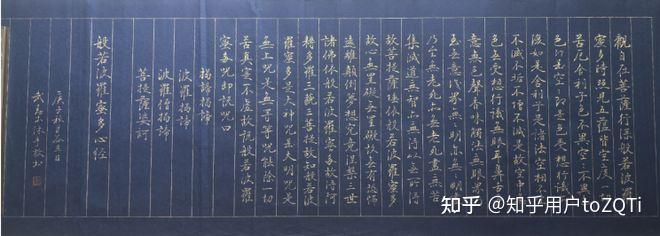 觀自在菩薩行深般若波羅
蜜多時照見五蘊皆空度一切
苦厄舍利子色不異空空不異
色色即是空空即是色受想行識亦
復如是舍利子是諸法空相不生
不滅不垢不淨不增不減是故空中無
色無受想行識無眼耳鼻舌身
意無色聲香味觸法無眼界乃
至無意識界無無明亦無無明盡
乃至無老死亦無老死盡無苦
集滅道無智亦無得以無所得
故菩提薩埵依般若波羅蜜多
故心無罣礙無罣礙故無有恐怖
遠離顛倒夢想究竟涅槃三世
諸佛依般若波羅蜜多故得阿
耨多羅三藐三菩提故知般若波
羅蜜多是大神咒是大明咒是
無上咒是無等等咒能除一切
苦真實不虛故說般若波羅
蜜多咒即說咒曰
揭諦揭諦
波羅揭諦
波羅僧揭諦
菩提薩婆訶
般若波羅蜜多心經
知乎 @知乎用户toZQTi